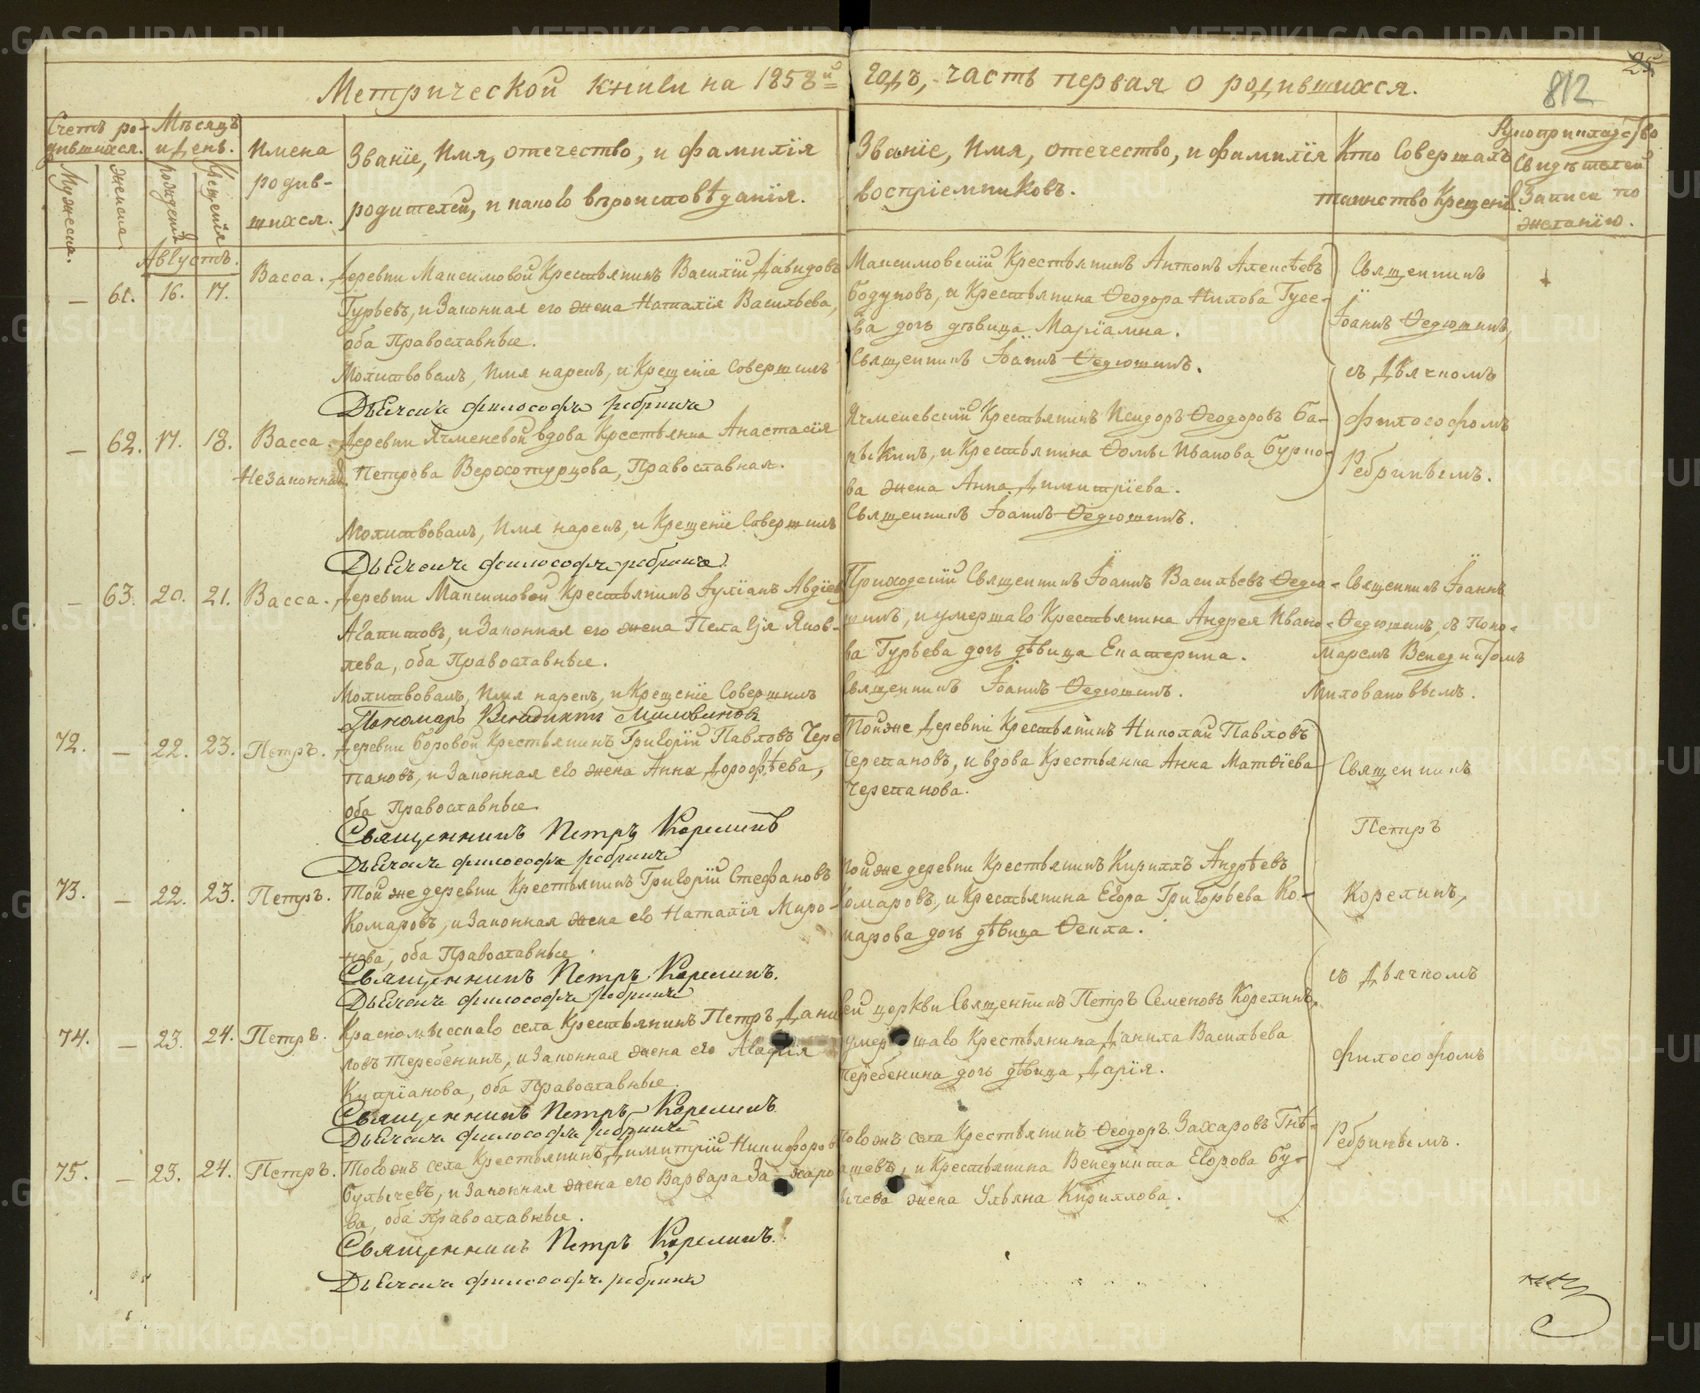 Метрической книги на 1858й годъ, часть первая о родившихся.
25
812
Счетъ родившихся.
Мужеска.
Женска.
Мѣсяцъ и день.
рожденія
Крещенія
Имена родившихся.
Званіе, Имя, отечество, и фамилія
родителей, и какого вѣроисповѣданія.
Званіе, Имя, отечество, и фамилія
воспріемниковъ.
Кто совершалъ
таинство Крещенія.
Рукоприкладство
свидѣтелей
записи по
желанію.
Августъ.
— 61. 16. 17. Васса. Деревни Максимовой Крестьянинъ Василій Давидовъ
Гурьевъ, и законная его жена Наталія Васильева,
оба Православные.
Молитвовалъ, Имя нарекъ, и Крещеніе совершилъ
Дьячекъ философъ ребринъ
Максимовскій Крестьянинъ Антонъ Алексѣевъ
Бодуновъ, и Крестьянина Ѳеодора Нилова Гусе-
ва дочь дѣвица Маріамна.
Священникъ Іоаннъ Ѳедюшинъ.
Священникъ
Іоаннъ Ѳедюшинъ,
съ Дьячкомъ
философомъ
Ребринымъ.
— 62. 17. 18. Васса Деревни Ячменевой вдова Крестьянка Анастасія
Незаконная Петрова Верхотурцова, Православная.
Молитвовалъ, Имя нарекъ, и Крещеніе совершилъ
Дьячекъ философъ ребринъ
Ячменевскій Крестьянинъ Исидоръ Ѳеодоровъ Ба-
ва жена Анна Димитріева.
Священникъ Іоаннъ Ѳедюшинъ.
— 63. 20. 21. Васса. Деревни Максимовой Крестьянинъ Іуліанъ Авдіевъ
Агапитовъ, и законная его жена Пелагія Яков-
лева, оба Православные.
Молитвовалъ, Имя нарекъ, и Крещеніе совершилъ
Пономарь Венедиктъ Миловановъ
Приходскій Священникъ Іоаннъ Васильевъ Ѳедю-
шинъ, и умершаго Крестьянина Андрея Ивано-
ва Гурьева дочь дѣвица Екатерина.
Священникъ Іоаннъ Ѳедюшинъ.
Священникъ Іоаннъ
Ѳедюшинъ, съ Поно-
маремъ Венедиктомъ
Миловановымъ.
72. — 22. 23. Петръ. Деревни Боровой Крестьянинъ Григорій Павловъ Чере
пановъ, и законная его жена Анна Дороѳѣева,
оба Православные.
Священникъ Петръ Корелинъ
Дьячекъ философъ ребринъ
Той же Деревни Крестьянинъ Николай Павловъ
Черепановъ, и вдова Крестьянка Анна Матѳіева
Черепанова.
Священникъ
Петръ
Корелинъ,
съ Дьячкомъ
философомъ
Ребринымъ.
73. — 22. 23. Петръ. Той же деревни Крестьянинъ Григорій Стефановъ
Комаровъ, и законная жена его Наталія Миро-
нова, оба Православные.
Священникъ Петръ Корелинъ.
Дьячекъ философъ ребринъ
Той же деревни Крестьянинъ Кириллъ Андрѣевъ
Комаровъ, и Крестьянина Егора Григорьева Ко-
марова дочь дѣвица Ѳекла.
74. — 23. 24. Петръ. Красномысскаго села Крестьянинъ Петръ Дани
ловъ Теребенинъ, и законная жена его Агафія
Купріанова, оба Православные.
Священникъ Петръ Корелинъ
Дьячекъ философъ ребринъ
Сей церкви Священникъ Петръ Семеновъ Корелинъ,
умершаго Крестьянина Данила Васильева
Теребенина дочь дѣвица Дарія.
75. — 23. 24. Петръ. Тогожъ села Крестьянинъ Димитрій Никифоровъ
Булычевъ, и законная жена его Варвара Захаро
ва, оба Православные.
Священникъ Петръ Корелинъ.
Дьячекъ философъ ребринъ
Тогожъ села Крестьянинъ Ѳеодоръ Захаровъ Гнѣ-
ашевъ, и Крестьянина Венедикта Егорова Бу-
лычева жена Ульяна Кириллова.
METRIKI.GASO-URAL.RU